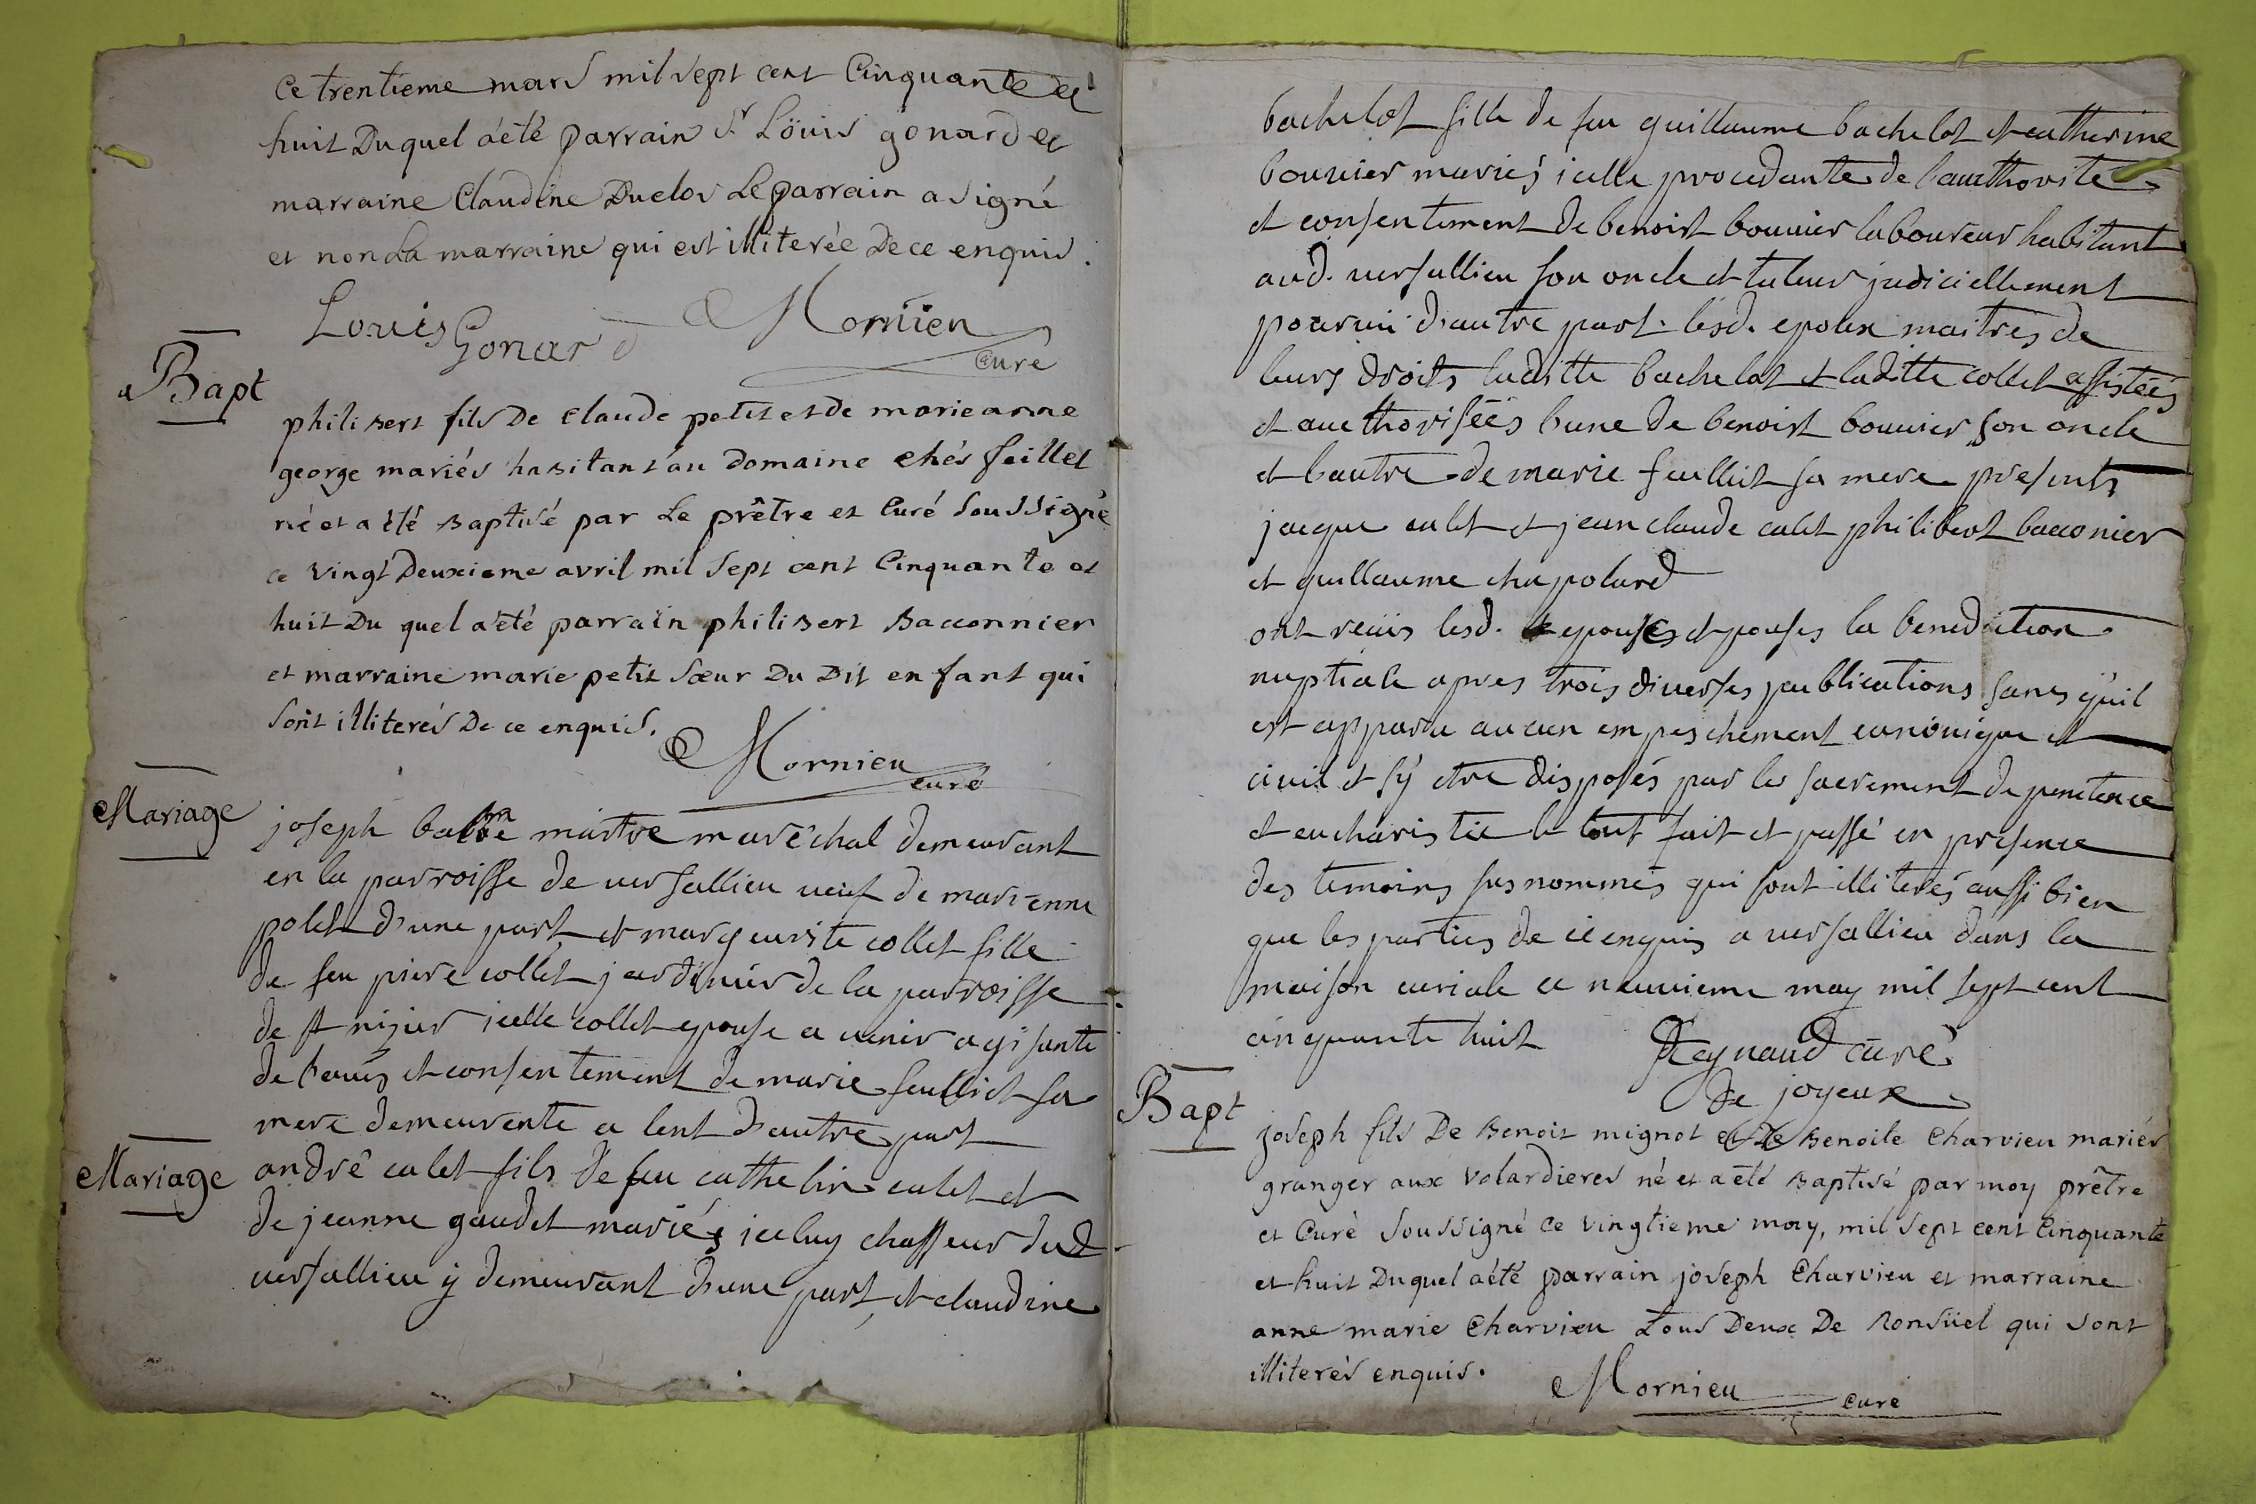 Ce trentieme mars mil sept cent Cinquante et
huit Duquel a été parrain Sr Löuis gonard et
marraine Claudine Duclos Le parrain a signé
et non La marraine qui est illiterée De ce enquis.
Louis Gonard Mornieu
Curé
Bapt
philibert fils De Claude petit et de marie anne
george mariés habitant au Domaine chés feillet
né et a été Baptisé par Le prêtre et Curé Soussigné
ce vingt Deuxieme avril mil Sept cent Cinquante et
huit Du quel a été parrain philibert Bacconnier
et marraine marie petit Sœur Du Dit enfant qui
sont illiterés De ce enquis.
Mornieu
curé
Mariage
joseph maitre maréchal demeurant
en la parroisse de versallieu veuf de marienne
polet d'une part et margeurite collet fille
de feu piere collet jardinier de la parroisse
de st nizier icelle collet epouse a venir agisante
de l'avis et consentement de marie feulliet sa
mere demeurente a lent d'autre part
Mariage
andré calet fils de feu cathelin calet et
de jeanne gaudet mariés iceluy chasseur dud
versallieu ÿ demeurant d'une part, et claudine
bachelot fille de feu guillaume bachelot et catherine
bouvier mariés icelle procedante de l'authorité
et consentement de benoist bouvier laboureur habitant
aud. versallieu son oncle et tuteur judiciellement
pourvü d'autre part. lesd. epoux maitres de
leurs droits laditte bachelot et laditte collet assistées
et aucthorisées l'une de benoist bouvier son oncle
et l'autre de marie feulliet sa mere presents
jacque calet et jean claude calet philibert bacconier
et guillaume chapolard
ont reçus lesd. epouses et epouses la benediction
nuptiale apres trois diverses publications sans qu'il
est apparu aucun empeschement canonique et
civil et s'ÿ etre disposés par les sacrement de penitence
et eucharistie le tout fait et passé en presence
des temoins susnommés qui sont illiterés aussi bien
que les parties de ce enquis a versallieu dans la
maison curiale ce neuvieme may mil sept cent
cinquante huit Reynaud curé
de joyeux
Bapt
joseph fils De Benoit mignot et De Benoite Charvieu mariés
granger aux volardieres né et a été Baptisé par moy prêtre
et Curé Soussigné ce vingtieme may, mil sept cent Cinquante
et huit Duquel a été parrain joseph Charvieu et marraine
anne marie Charvieu Tous Deux De Ronsüel qui sont
illiterés enquis.
Mornieu curé